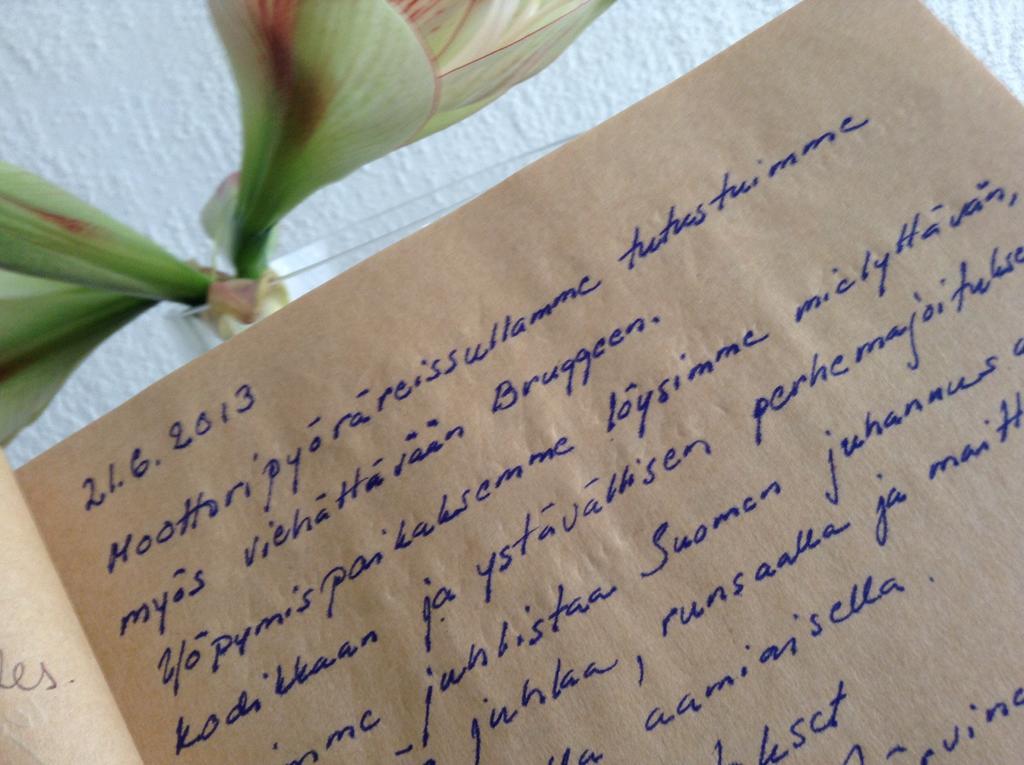 21.6.2013
Moottoripyöräreissullamme tutustuimme
myös viehättävään Bruggeen.
Yöpymispaikaksemme löysimme miellyttävän,
kodikkaan ja ystävällisen perhemajoitukse
imme juhlistaa Suomen juhannus a
juhlaa, runsaalla ja maitt
lla aamiaisella.
kset
Järvine
les.